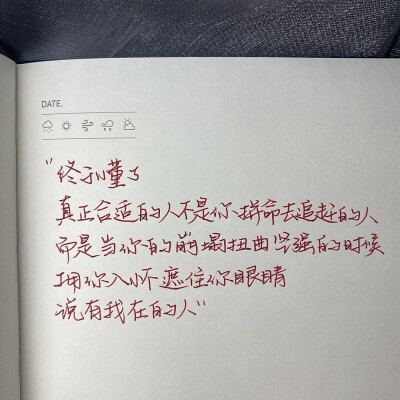 DATE.
“终于懂了
真正合适的人不是你拼命去追赶的人
而是当你的崩塌扭曲坚强的时候
拥你入怀遮住你眼睛
说有我在的人”